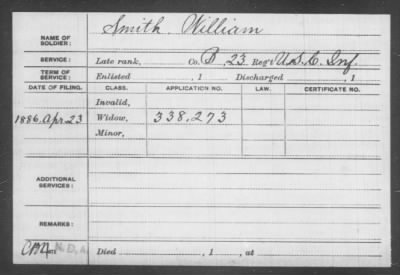 NAME OF SOLDIER: Smith, William
SERVICE: Late rank, Co. B, 23 Reg't U.S.C. Inf.
TERM OF SERVICE: Enlisted , 1 Discharged , 1
DATE OF FILING. CLASS. APPLICATION NO. LAW. CERTIFICATE NO.
Invalid,
1886, Apr. 23 Widow, 338,273
Minor,
ADDITIONAL SERVICES:
REMARKS:
N.D.A. Died , 1 , at